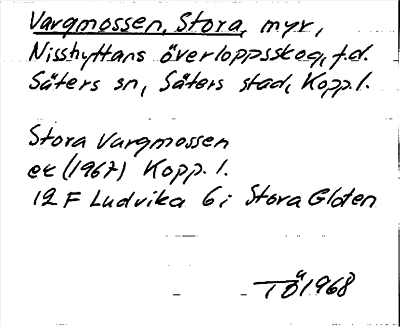 Vargmossen, Stora, myr,
Nisshyttans överloppsskog, f.d.
Säters sn, Säters stad, Kopp. l.
Stora Vargmossen
ek (1967) Kopp. l.
12 F Ludvika 6 i Stora Gloten
TÖ 1968